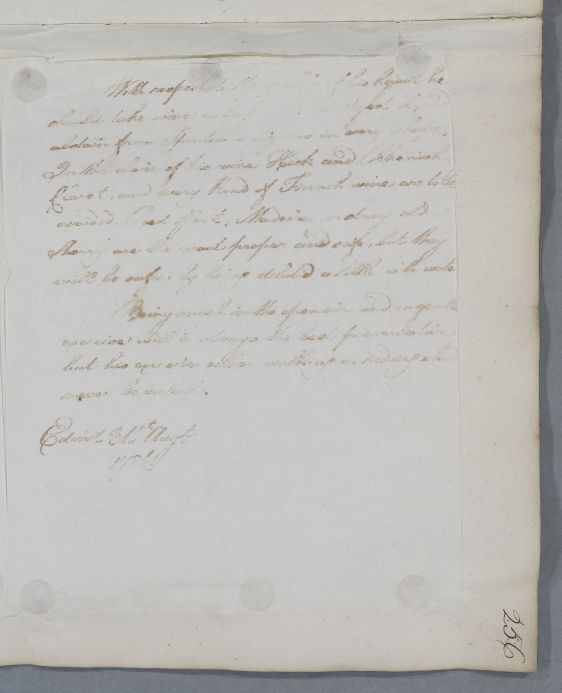 With respect to the of his liquor he
should take wine
abstain from Spirituous liquors in every shape.
In the choice of his wine Hock and Rhenish,
Claret, and every kind of French wine are to be
avoided. Red Port, Madeira, or dry old
Sherry are the most proper and safe, but they
will be safer by being diluted a little with water
Being much in the open air and in gentle
exercise will be always the best preservative
but his exercise either walking or riding
never be violent.
Edinr. 31st. Augt.
256